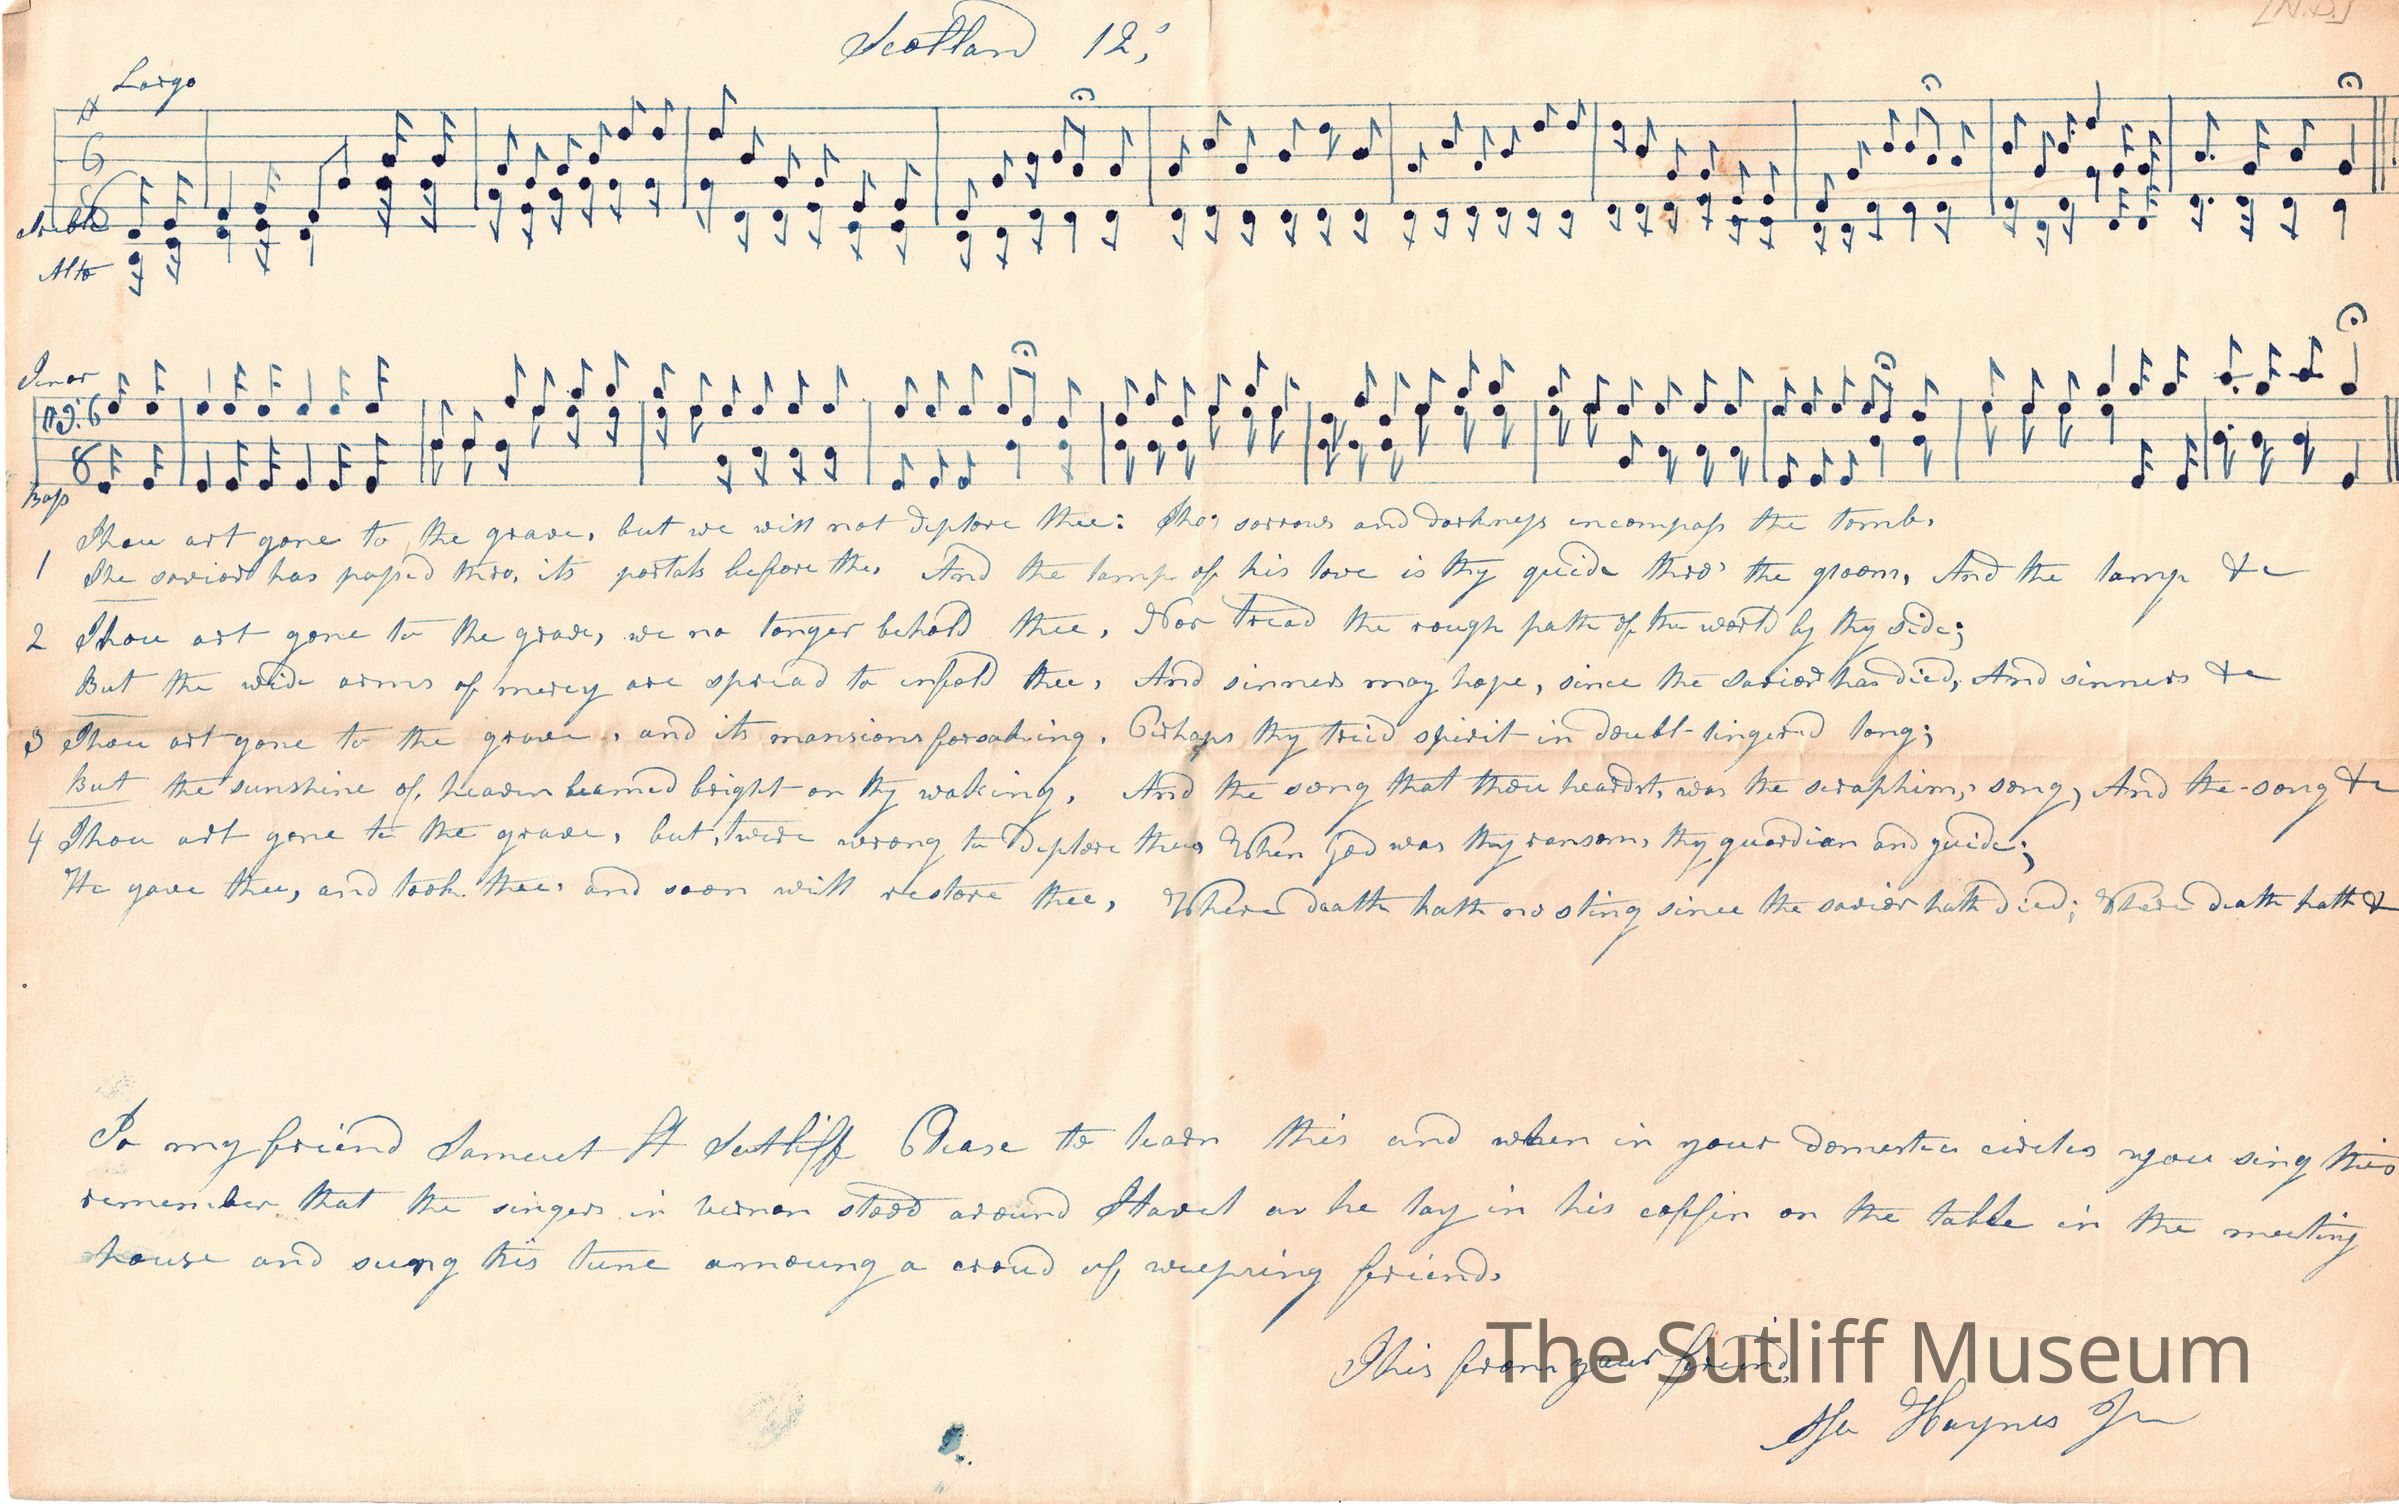 Scotland 12,s
[N.D.]
Largo
6
8
Treble
Alto
Tenor
6
8
Bass
Thou art gone to the grave, but we will not deplore thee: Tho' sorrows and darkness encompass the tomb,
1 The savior has passed thro, its portals before the, And the lamp of his love is thy guide thro' the gloom, And the lamp &c
2 Thou art gone to the grave, we no longer behold thee, Nor tread the rough path of the world by thy side;
But the wide arms of mercy are spread to infold thee, And sinners may hope, since the savior has died, And sinners &c
3 Thou art gone to the grave, and its mansions forsaking, Perhaps thy tried spirit in doubt lingered long;
But the sunshine of, heaven beamed bright on thy waking, And the song that thou heardst, was the seraphim,s song, And the song &c
4 Thou art gone to the grave, but, twere wrong to deplore thee When God was thy ransom, thy guardian and guide;
He gave thee, and took thee, and soon will restore thee, Where death hath no sting since the savior hath died; Where death hath &
To my friend Samuel Sutliff Please to learn this and when in your domestic circles you sing this
remember that the singers in vernon stood around as he lay in his coffin on the table in the meeting
house and sung this tune amoung a croud of, weepring friends
This from your friend,
The Sutliff Museum
Asa Haynes Jr